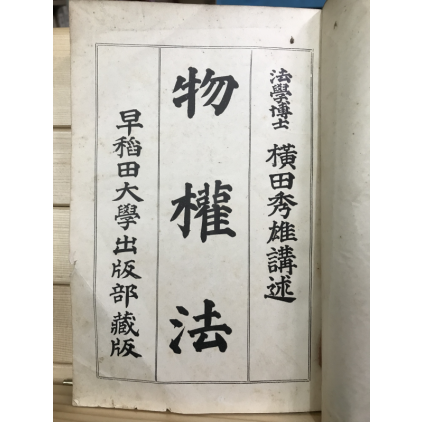 法學博士 橫田秀雄講述
物權法
早稻田大學出版部藏版